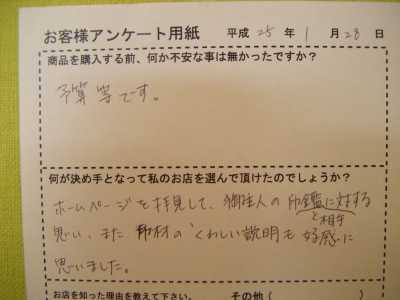 お客様アンケート用紙 平成 25 年 1 月 28 日
商品を購入する前、何か不安な事は無かったですか?
予算等です。
何が決め手となって私のお店を選んで頂けたのでしょうか?
ホームページを拝見して、御主人の印鑑に対する
と相手
思い、また、印材のくわしい説明も好感に
思いました。
お店を知った理由を教えて下さい。 その他(